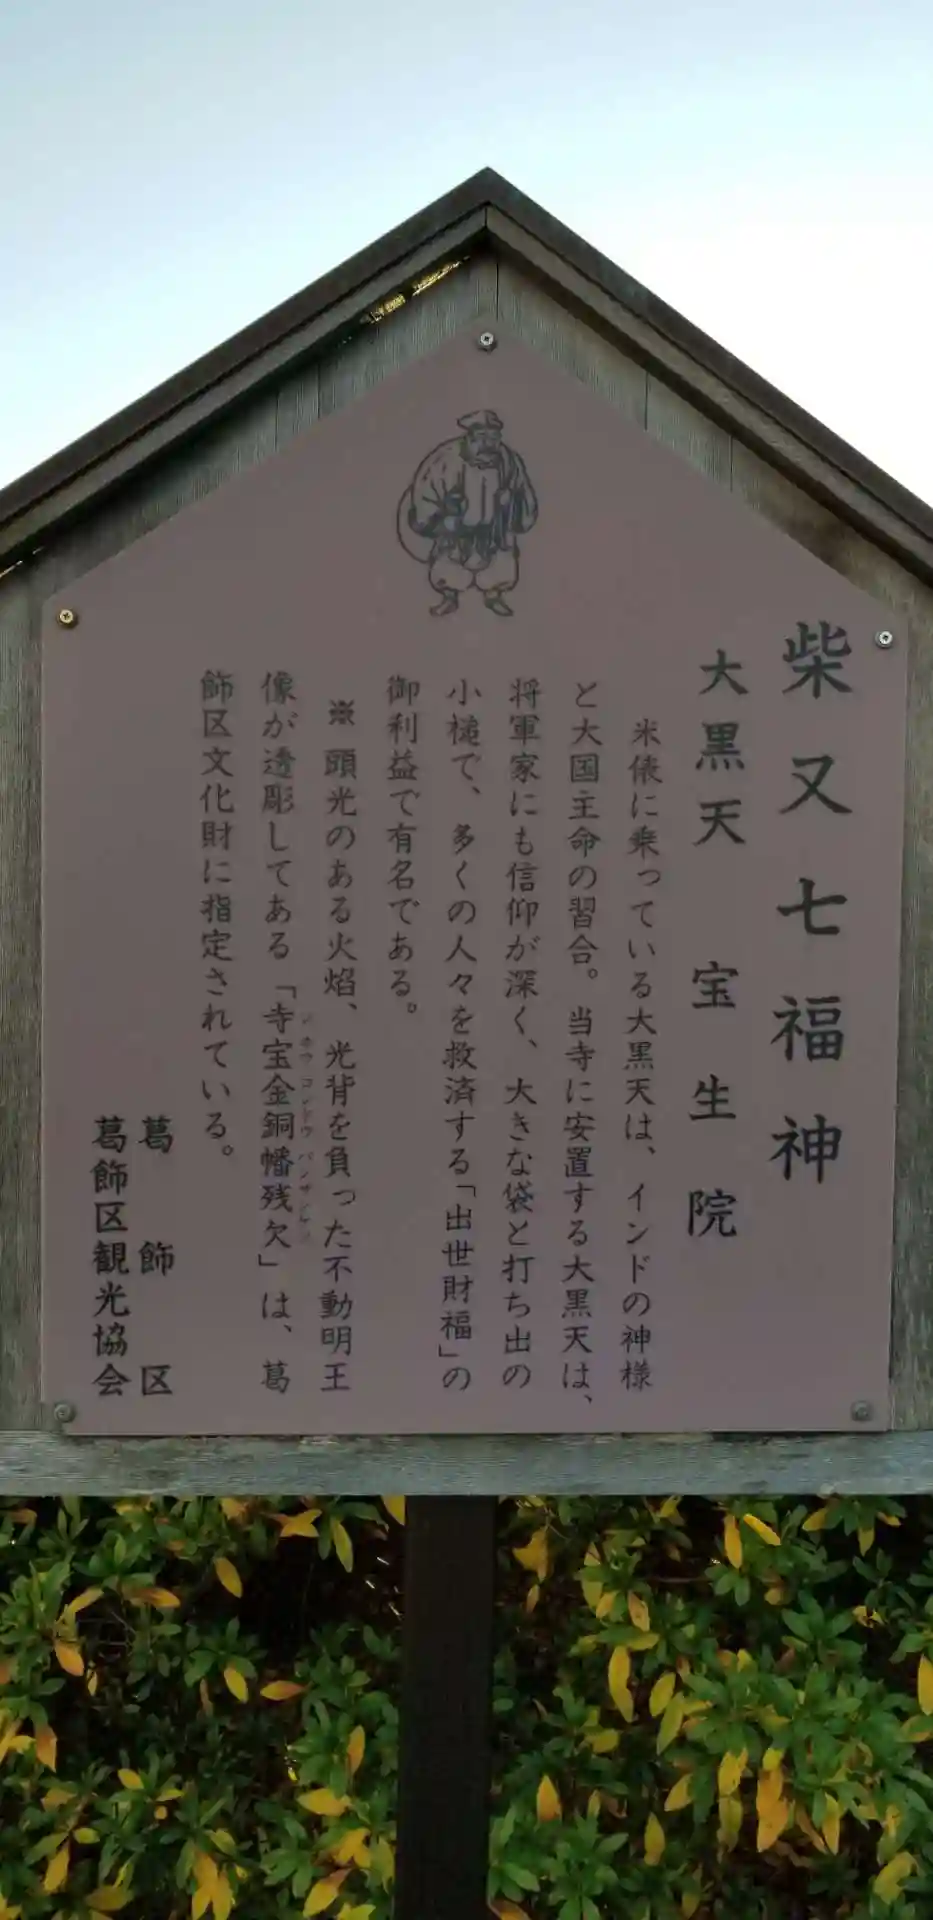 柴又七福神
大黒天 宝生院
米俵に乗っている大黒天は、インドの神様
と大国主命の習合。当寺に安置する大黒天は、
将軍家にも信仰が深く、大きな袋と打ち出の
小槌で、多くの人々を救済する「出世財福」の
御利益で有名である。
※ 頭光のある火焔、光背を負った不動明王
像が透彫してある「寺宝金銅幡残欠」は、葛
飾区文化財に指定されている。
葛飾区
葛飾区観光協会